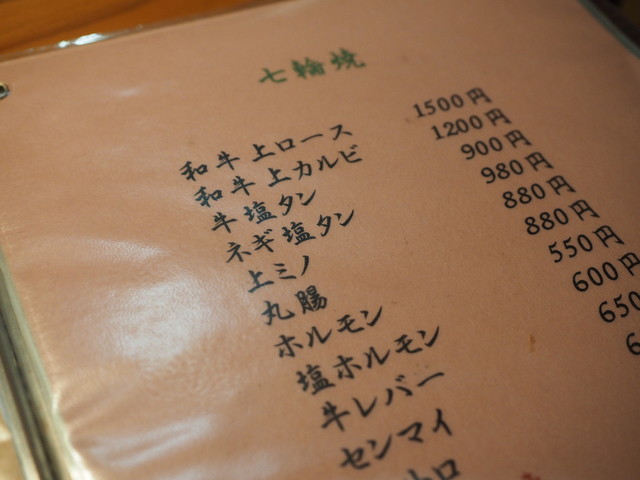 七輪焼
和牛上ロース 1500円
和牛上カルビ 1200円
牛塩タン 900円
ネギ塩タン 980円
上ミノ 880円
丸腸 880円
ホルモン 550円
塩ホルモン 600円
牛レバー 650
センマイ 6
トロ